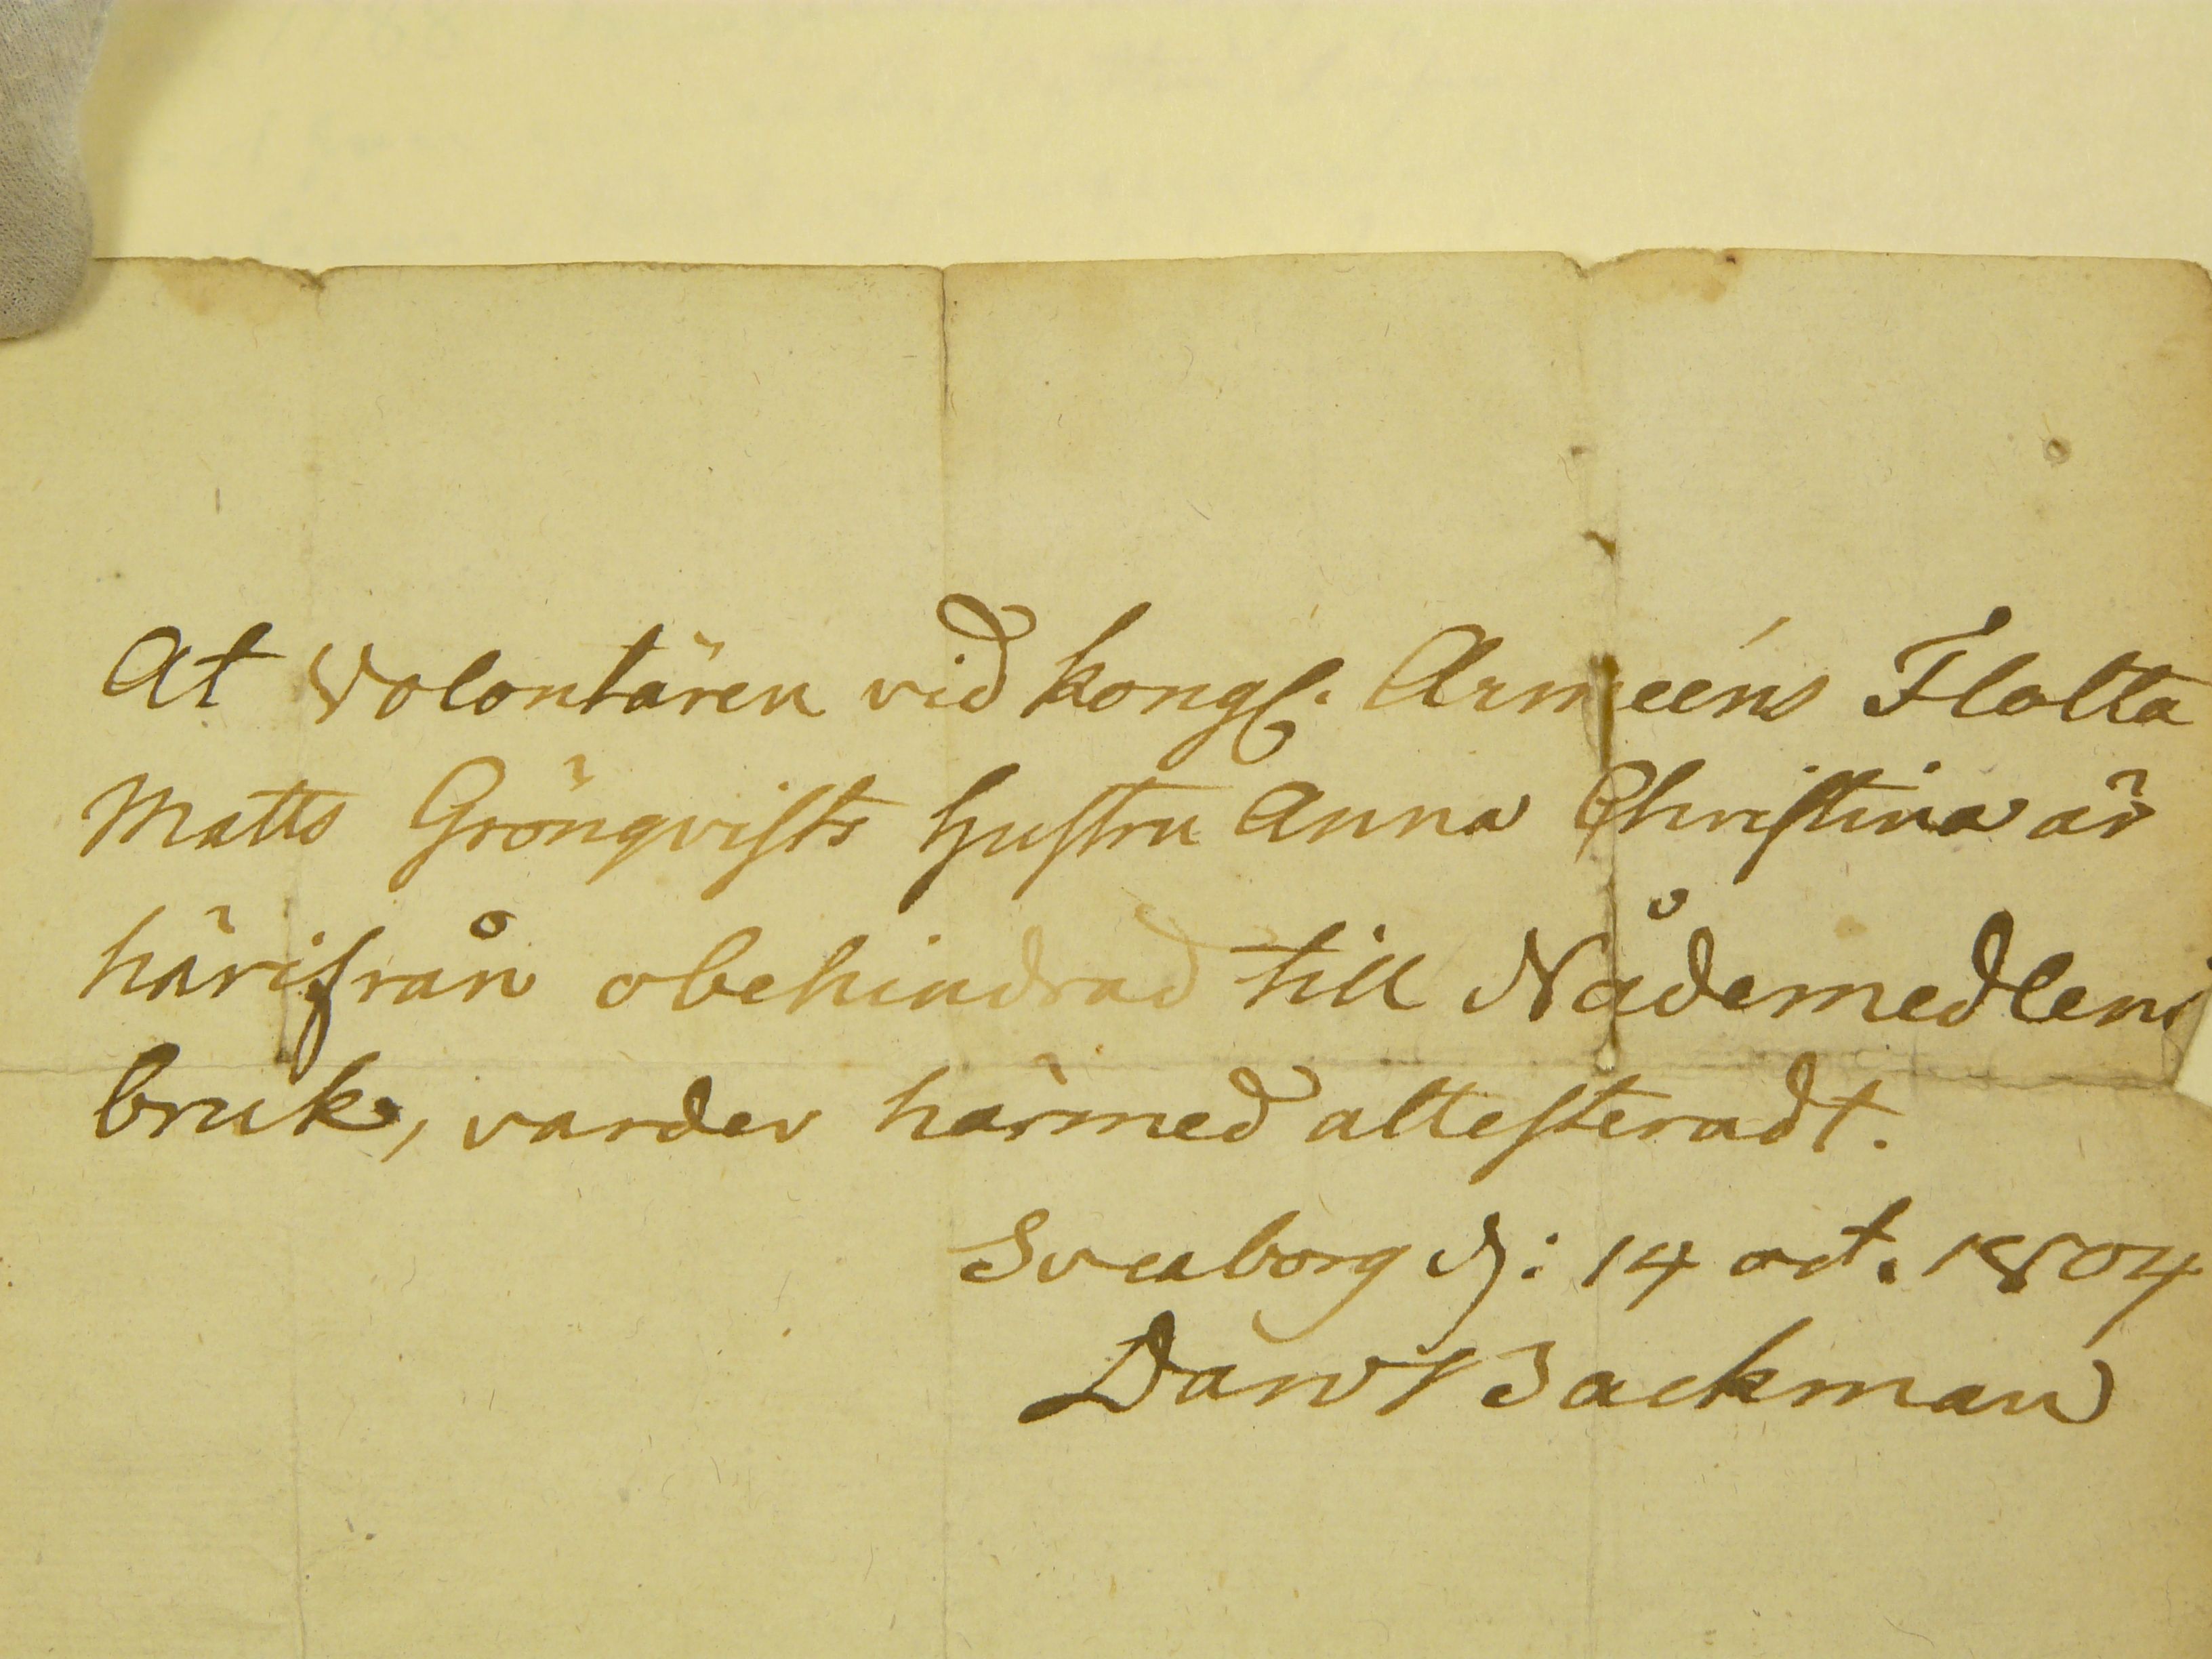 At Volontären vid Kongl. Armeéns Flotta
Matts Grönqvists hustru Anna Christina är
härifrån obehindrad till Nådemedlens
bruk, varder härmed attesteradt.
Sveaborg d: 14 oct. 1804
Dav Backman